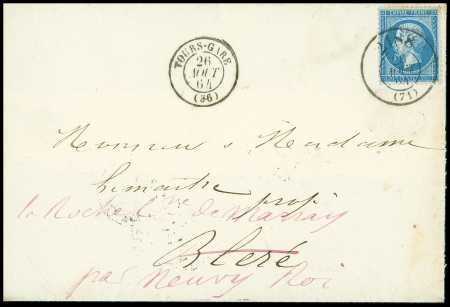 TOURS-GARE
26
AOUT
64
(36)
(71)
EMPIRE FRANC
Monsieur & Madame
Lemaitre prop
la Roche de Marray
Bleré
par Neuvy Roi